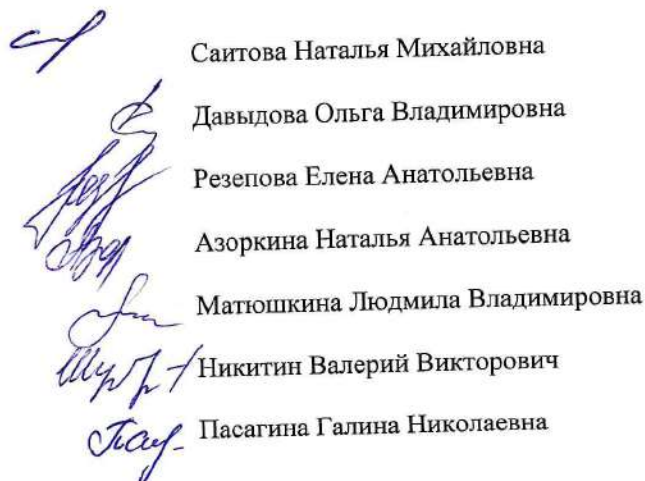 Саитова Наталья Михайловна
Давыдова Ольга Владимировна
Резепова Елена Анатольевна
Азоркина Наталья Анатольевна
Матюшкина Людмила Владимировна
Никитин Валерий Викторович
Пасагина Галина Николаевна